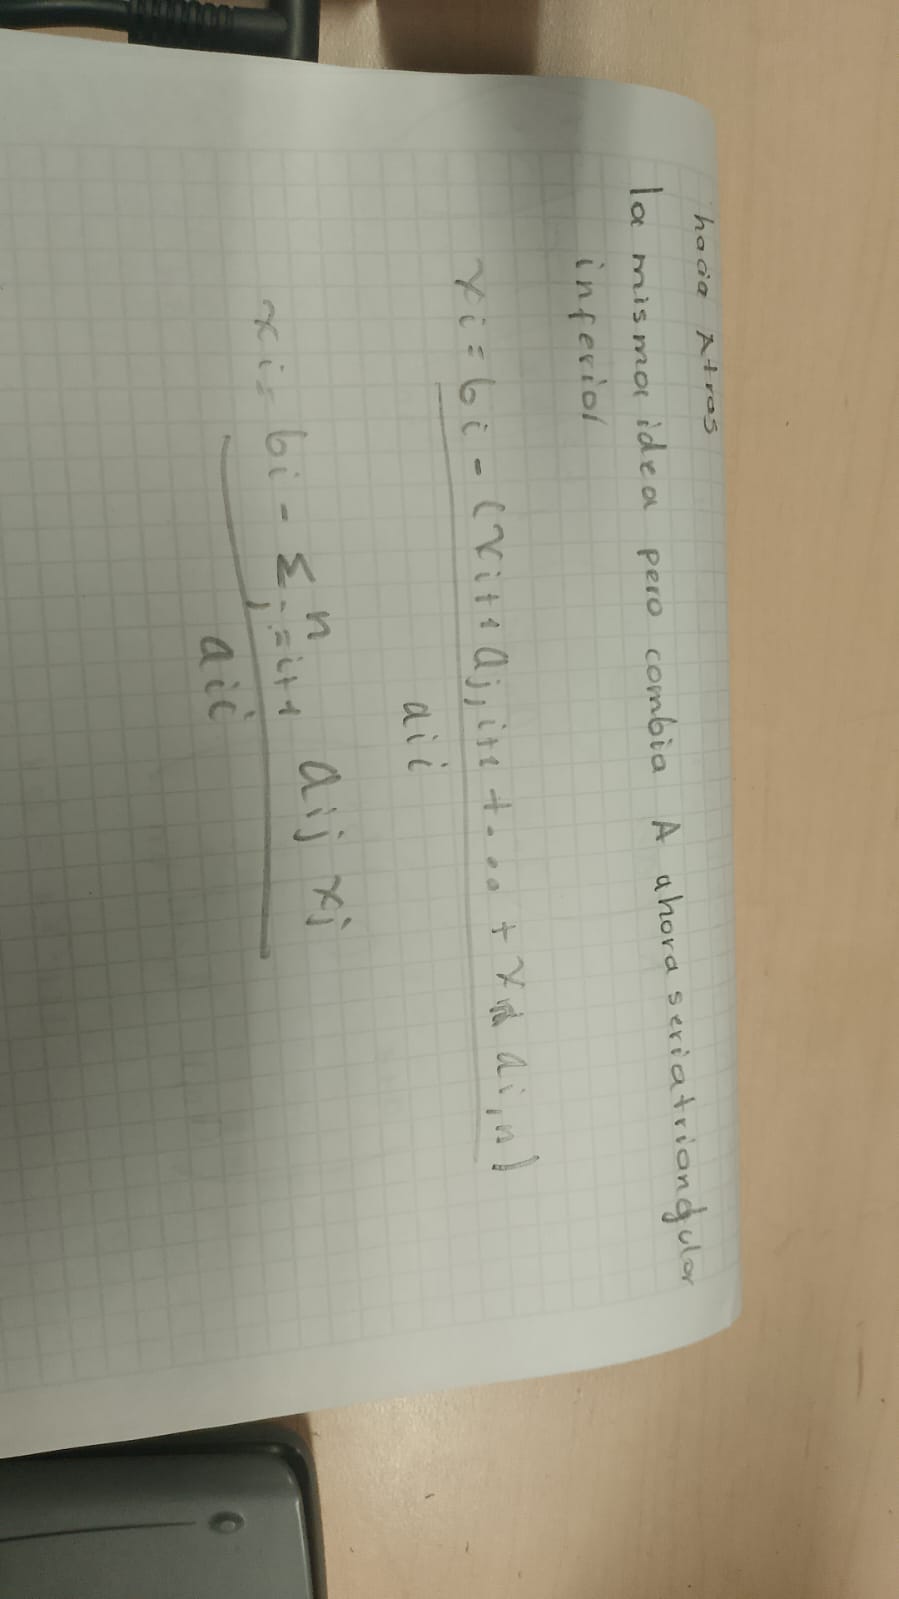 hacia Atras
la misma idea pero cambia A ahora seria triangular
inferior
xi = bi - (xi+1 aj,i+1 + ... + xn ai,n)
aii
xi = bi - Σ j=i+1 n aij xj
aii